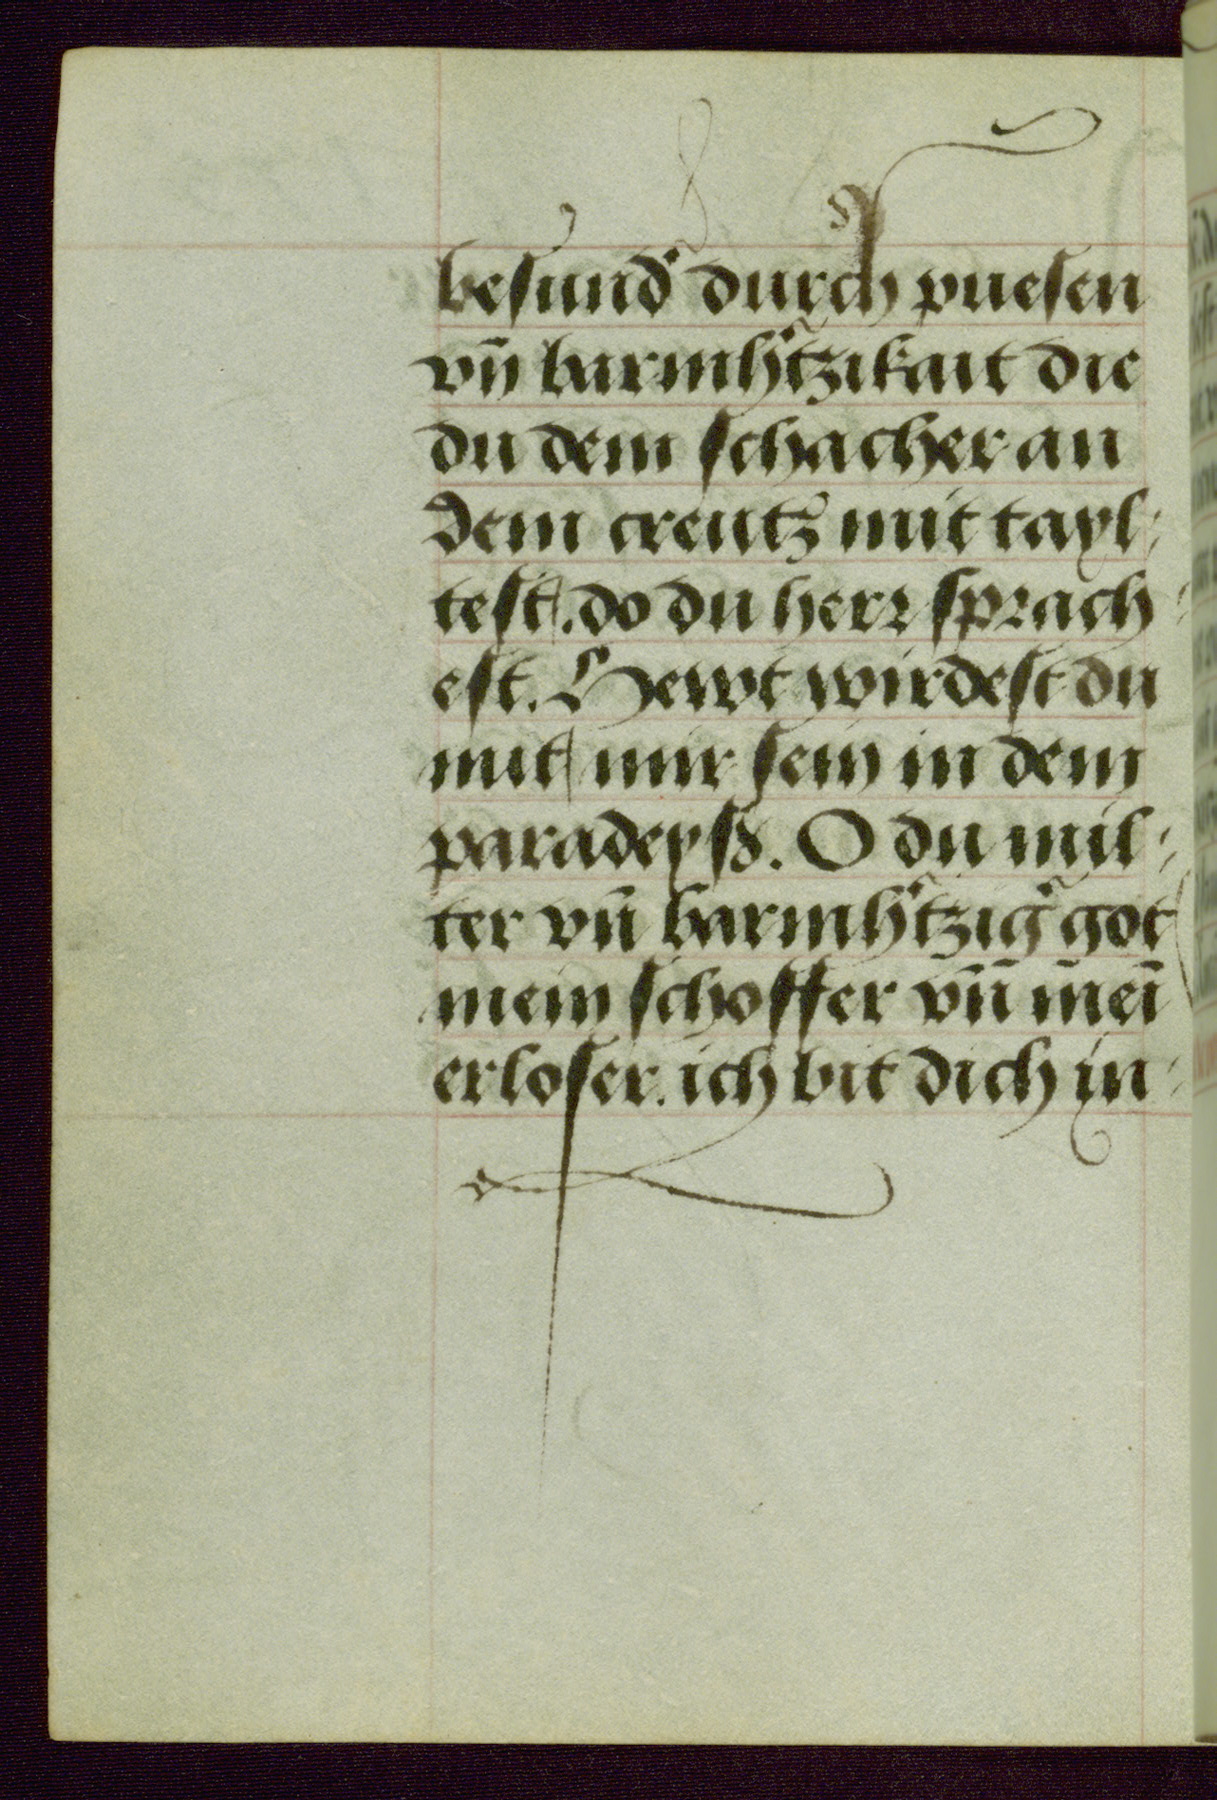 beſundᷣ durch pueſen
vn̄ barmh᷑tzikait die
du dem ſchacher an
dem creutz mit tayl⸗
teſt. do du herr ſprach⸗
eſt. Hewt wirdeſt du
mit mir ſein in dem
paradeyſz. O du mil⸗
ter vn̄ barmh᷑tzig᷑ got
mein ſchoffer vn̄n̄ m̄eī
erloſer. ich bit dich in⸗